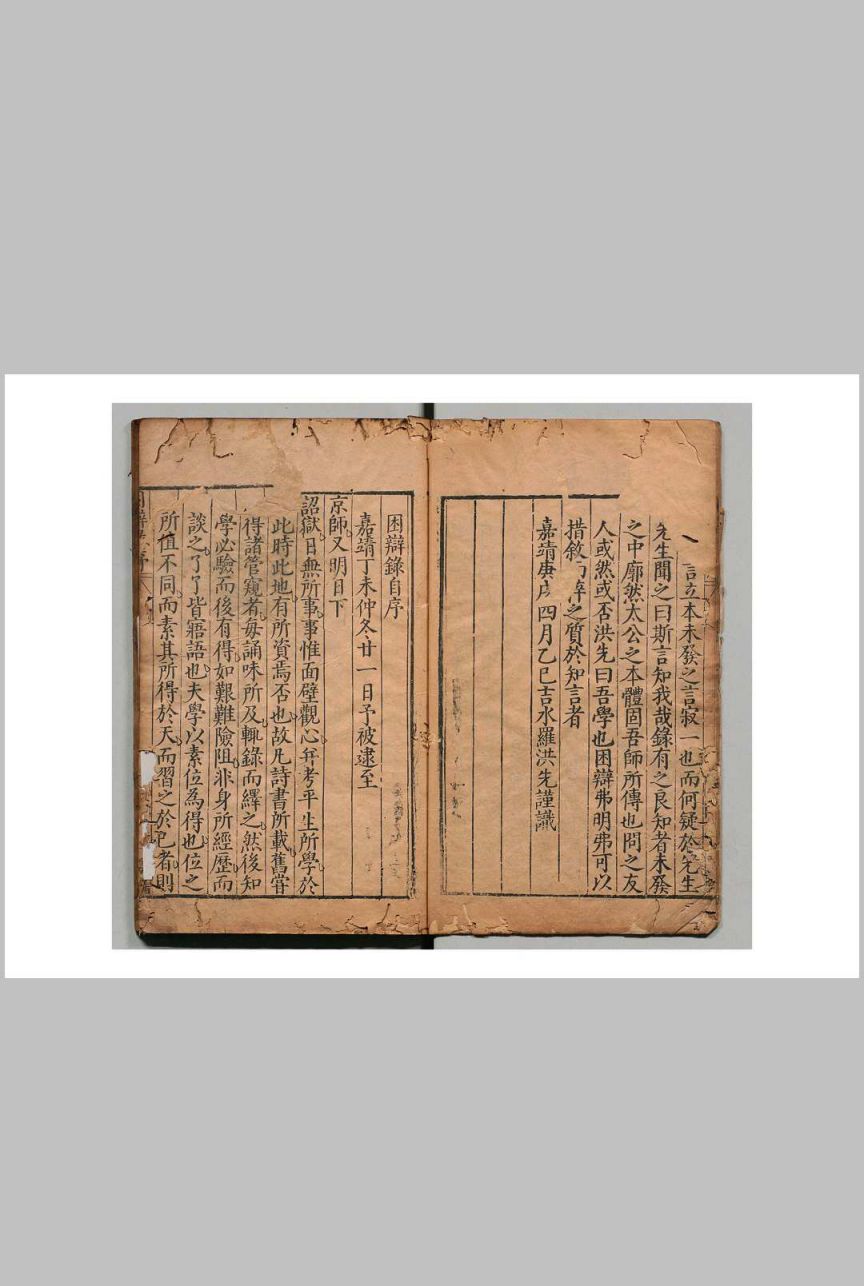 言立本未發之言寂一也而何疑於先生
先生聞之曰斯言知我哉錄有之良知者未發
之中廓然太公之本體固吾師所傳也問之友
人或然或否洪先曰吾學也困辯弗明弗可以
措敘而梓之質於知言者
嘉靖庚戌四月乙巳吉水羅洪先謹識
困辯錄自序
嘉靖丁未仲冬廿一日予被逮至
京師又明日下
詔獄日無所事事惟面壁觀心并考平生所學於
此時此地有所資焉否也故凡詩書所載舊嘗
得諸管窺者每誦味所及輒錄而繹之然後知
學必驗而後有得如艱難險阻非身所經歷而
談之了了皆寤語也夫學以素位為得也位之
所值不同而素其所得於天而習之於己者則